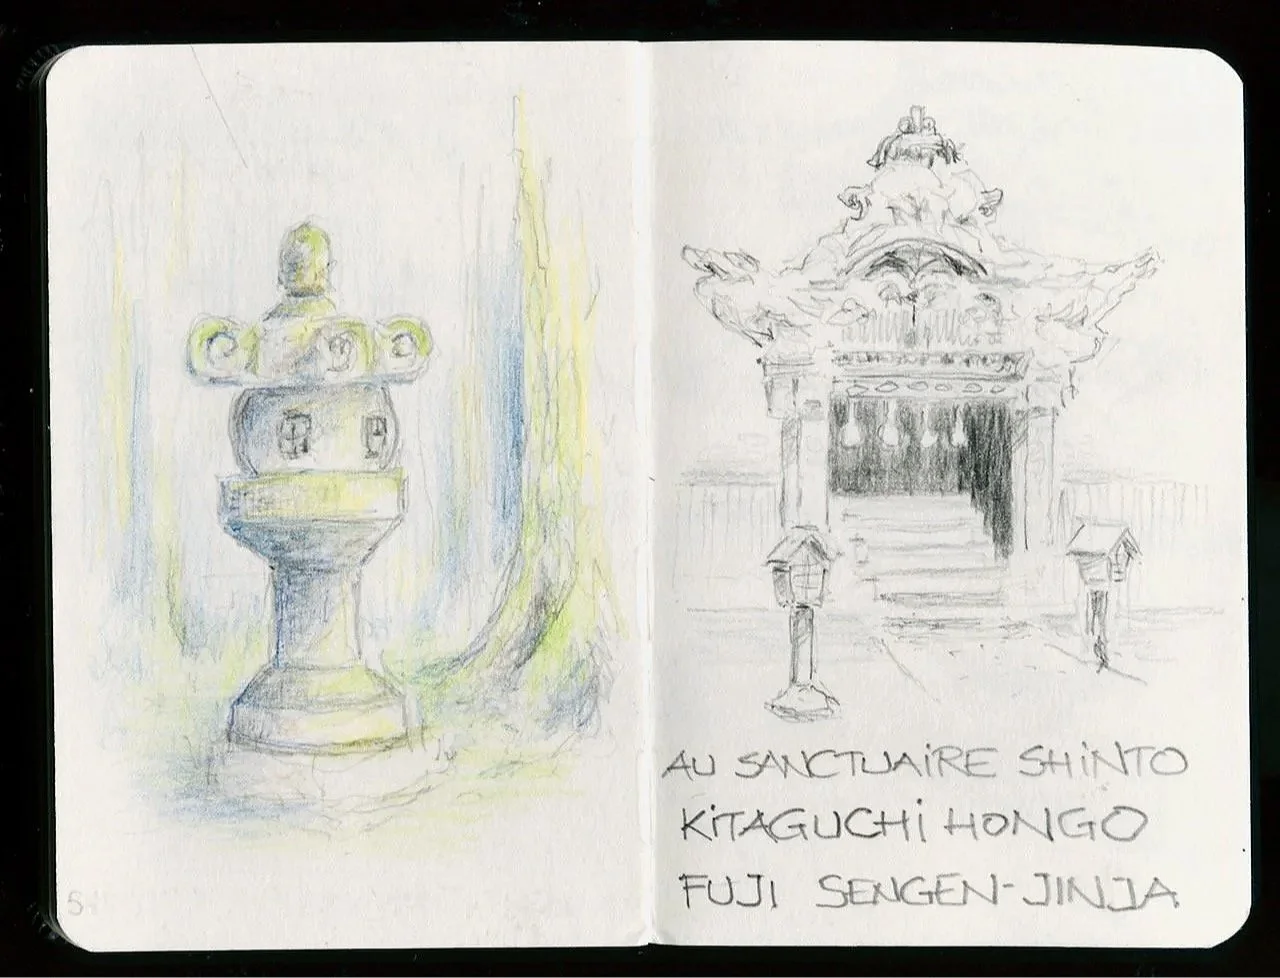 AU SANCTUAiRE SHiNTO
KiTAGUCHi HONGO
FUJI SENGEN-JINJA